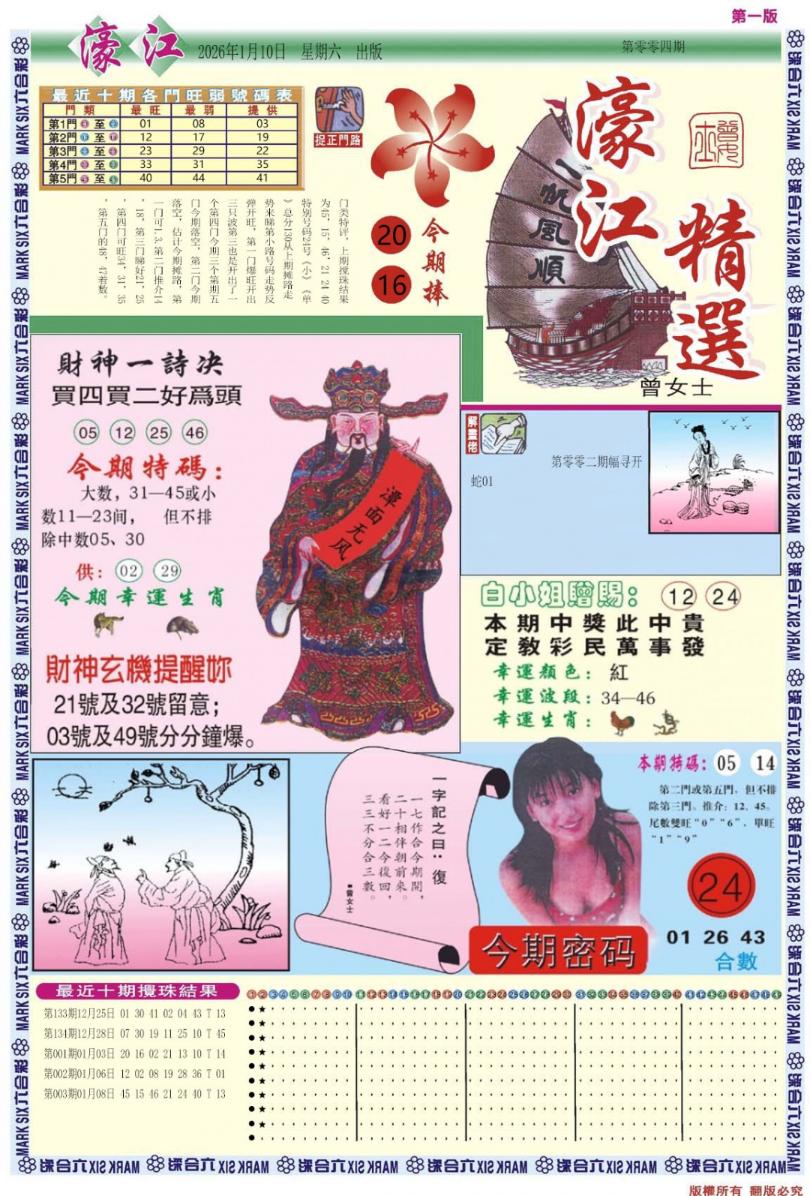 第一版
濠江
2026年1月10日 星期六 出版
第零零四期
最近十期各門旺弱號碼表
門類 最旺 最弱 提供
第1門 至 01 08 03
第2門 至 12 17 19
第3門 至 23 29 22
第4門 至 33 31 35
第5門 至 40 44 41
捉正門路
门类特评，上期搅珠结果
为45，15，46，21 24 40
特别号码24号《小》《单
》总分130从上期摊路走
势来睇第小路号码走势反
弹开旺，第一门爆旺开出
三只波第三也是开出了一
个第四门今期三个第期五
门今期落空，第二门今期
落空，估计今期摊路，第
一门可1.3.第二门推介14
，18，第三门睇好21，25
，第四门可旺34，31，35
，第五门的48，47着数。
20
16
今期捧
一帆風順
濠江
精選
曾女士
財神一詩决
買四買二好爲頭
05 12 25 46
今期特碼：
大数，31—45或小
数11—23间， 但不排
除中数05、30
供：02 29
今期幸運生肖
財神玄機提醒妳
21號及32號留意；
03號及49號分分鐘爆。
潭面无风
解畫佬
第零零二期幅寻开
蛇01
白小姐贈賜：12 24
本期中獎此中貴
定教彩民萬事發
幸運顏色：紅
幸運波段：34—46
幸運生肖：
一字記之曰：復
一七作合今期開，
二十相伴朝前來。
看好一二今復回，
三三不分合三數。
■曾女士
本期特碼：05 14
第二門或第五門，但不排
除第三門。推介：12、45。
尾數雙旺“0”“6”，單旺
“1”“9”
24
01 26 43
合數
今期密码
最近十期攪珠結果
第133期12月25日 01 30 41 02 04 43 T 13
第134期12月28日 07 30 19 11 25 10 T 45
第001期01月03日 20 16 02 21 13 10 T 14
第002期01月06日 12 02 08 19 28 36 T 01
第003期01月08日 45 15 46 21 24 40 T 13
MARK SIX六合彩
版權所有 翻版必究